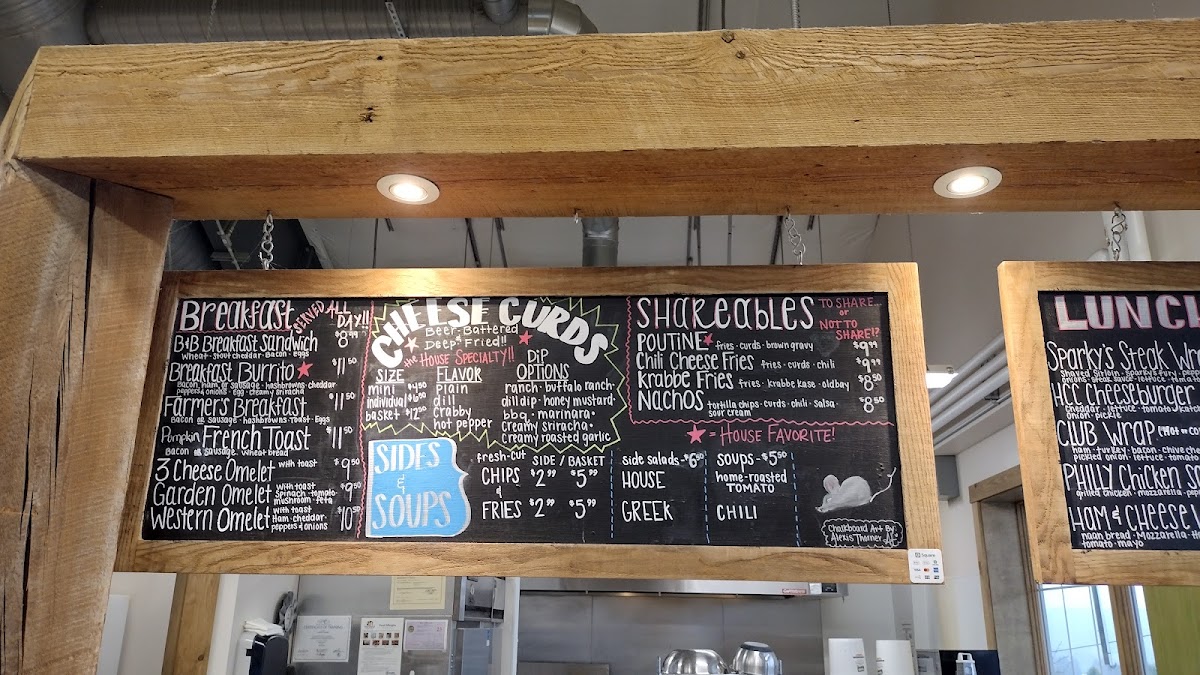 Breakfast SERVED ALL DAY!!
B&B Breakfast Sandwich $8.99
Wheat · stout cheddar · Bacon · eggs
Breakfast Burrito $11.50
Bacon, ham, or sausage · hashbrowns · cheddar
peppers & onions · egg · creamy sriracha
Farmer's Breakfast $11.50
Bacon or Sausage · Hashbrowns · Toast · Eggs
Pumpkin French Toast $11.50
Bacon or Sausage · Wheat bread
3 Cheese Omelet with toast $9.50
Garden Omelet with toast $9.50
Spinach · tomato
mushroom · feta
Western Omelet with toast $10.50
Ham · cheddar
peppers & onions
CHEESE CURDS
Beer-Battered
Deep Fried!!
the HOUSE SPECIALTY!!
SIZE
mini $4.50
individual $6.00
basket $12.50
FLAVOR
plain
dill
crabby
hot pepper
DIP OPTIONS
ranch · buffalo ranch ·
dill dip · honey mustard ·
bbq · marinara ·
creamy sriracha ·
creamy roasted garlic
SHAREABLES
TO SHARE...
or
NOT TO
SHARE!?
POUTINE fries · curds · brown gravy $9.99
Chili Cheese Fries fries · curds · chili $9.99
Krabbe Fries fries · krabbe kase · oldbay $8.50
Nachos tortilla chips · curds · chili · salsa · $8.50
sour cream
= HOUSE FAVORITE!
SIDES
&
SOUPS
fresh-cut SIDE / BASKET
CHIPS $2.99 $5.99
&
FRIES $2.99 $5.99
side salads - $6.50
HOUSE
GREEK
SOUPS - $5.50
home-roasted
TOMATO
CHILI
Chalkboard Art By:
Alexis Thorner
Square
LUNC
Sparky's Steak Wra
Shaved Sirloin · Sparky's fury · pepp
onions · steak sauce · lettuce · tomat
ACC Cheeseburger
cheddar · lettuce · tomato
onion · pickle
CLUB WRAP
ham · turkey · bacon · chive che
pickled onion · lettuce · tomato
PHILLY CHICKEN S
grilled chicken · mozzarella · pe
HAM & CHEESE
naan bread · Mozzarella · Ha
tomato · mayo